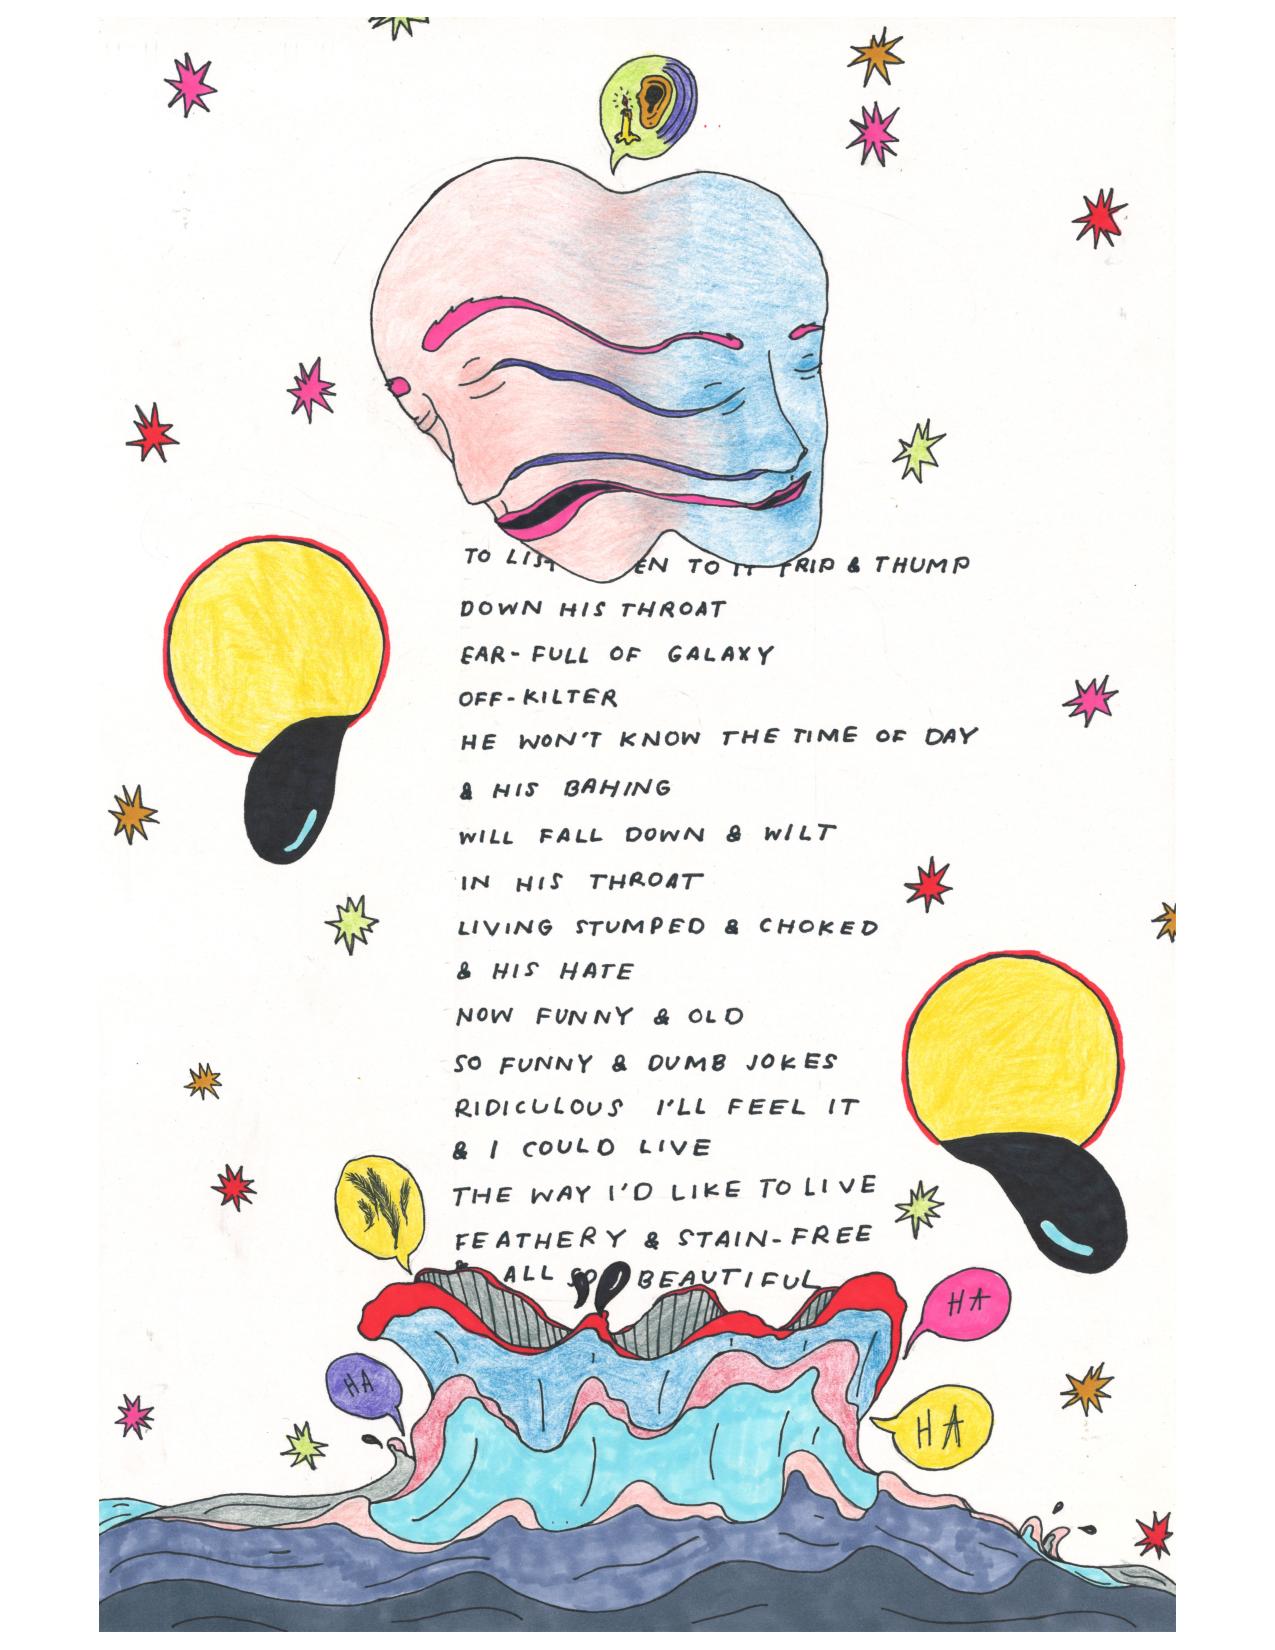 TO LISTEN TO IT TRIP & THUMP
DOWN HIS THROAT
EAR-FULL OF GALAXY
OFF-KILTER
HE WON'T KNOW THE TIME OF DAY
& HIS BAHING
WILL FALL DOWN & WILT
IN HIS THROAT
LIVING STUMPED & CHOKED
& HIS HATE
NOW FUNNY & OLD
SO FUNNY & DUMB JOKES
RIDICULOUS I'LL FEEL IT
& I COULD LIVE
THE WAY I'D LIKE TO LIVE
FEATHERY & STAIN-FREE
& ALL SO BEAUTIFUL
HA
HA
HA